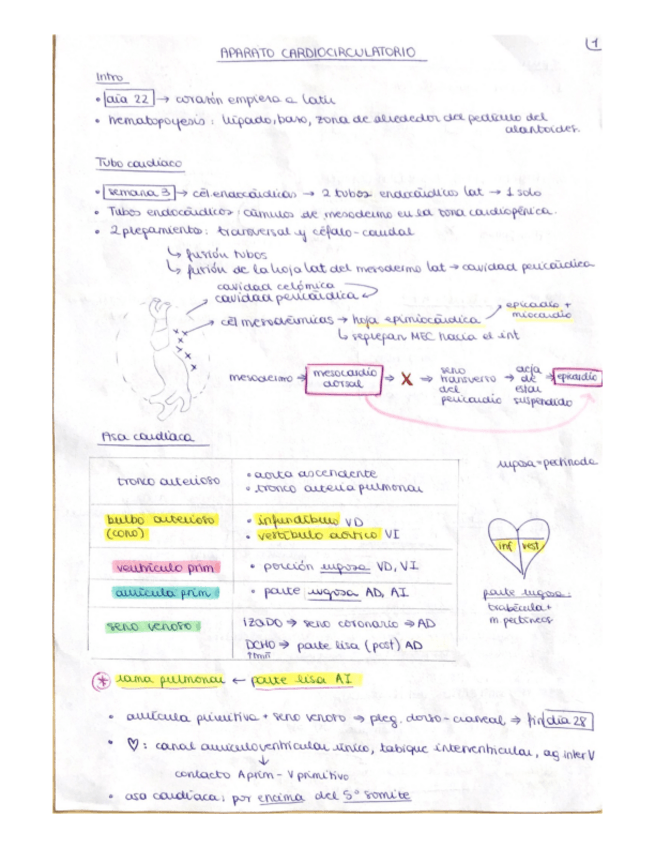 1
APARATO CARDIOCIRCULATORIO
Intro
• día 22 → corazón empieza a latir
• hematopoyesis: hígado, bazo, zona de alrededor del pedículo del
alantoides.
Tubo cardíaco
• semana 3 → cél endocárdicas → 2 tubos endocárdicos lat → 1 solo
• Tubos endocárdicos: cúmulos de mesodermo en la zona cardiogénica.
• 2 plegamientos: transversal y céfalo-caudal
↳ fusión tubos
↳ fusión de la hoja lat del mesodermo lat → cavidad pericárdica
cavidad celómica
cavidad pericárdica
→ cél mesodérmicas → hoja epimiocárdica → epicardio + miocardio
↳ segregan MEC hacia el int
mesodermo → mesocardio dorsal → X → seno transverso del pericardio → deja de estar suspendido → epicardio
Asa cardíaca
rugosa = pectinada
tronco arterioso
• aorta ascendente
• tronco arteria pulmonar
bulbo arterioso (cono)
• infundíbulo VD
• vestíbulo aórtico VI
inf vest
ventrículo prim
• porción rugosa VD, VI
aurícula prim.
• parte rugosa AD, AI
parte rugosa:
trabécula +
m. pectíneos
seno venoso
IZQDO → seno coronario → AD
DCHO → parte lisa (post) AD
* rama pulmonar ← parte lisa AI
• aurícula primitiva + seno venoso ⇒ pleg. dorso-craneal ⇒ fin día 28
• ♡: canal auriculoventricular único, tabique interventricular, ag inter V
↓
contacto A prim - V primitivo
• asa cardíaca: por encima del 5º somite